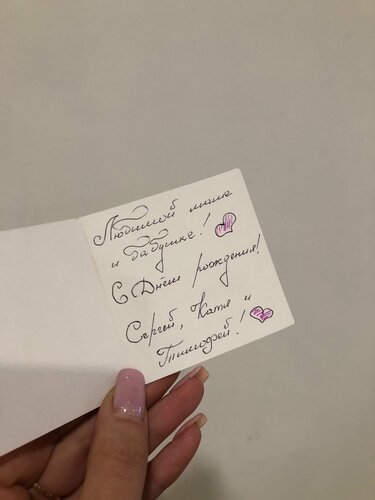 Любимой маме
и бабушке!
С Днём рождения!
Сергей, Катя и
Тимофей!